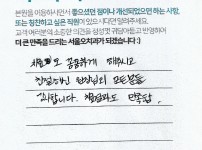 본원을 이용하시면서 좋으셨던 점이나 개선되었으면 하는 사항,
또는 칭찬하고 싶은 직원이 있으시다면 알려주세요.
고객 여러분의 소중한 의견을 정성껏 귀담아듣고 반영하여
더 큰 만족을 드리는 서울오치과가 되겠습니다 :)
치료도 꼼꼼하게 해주시고
친절하신 원장님외 모든분들
감사합니다. 만족함.